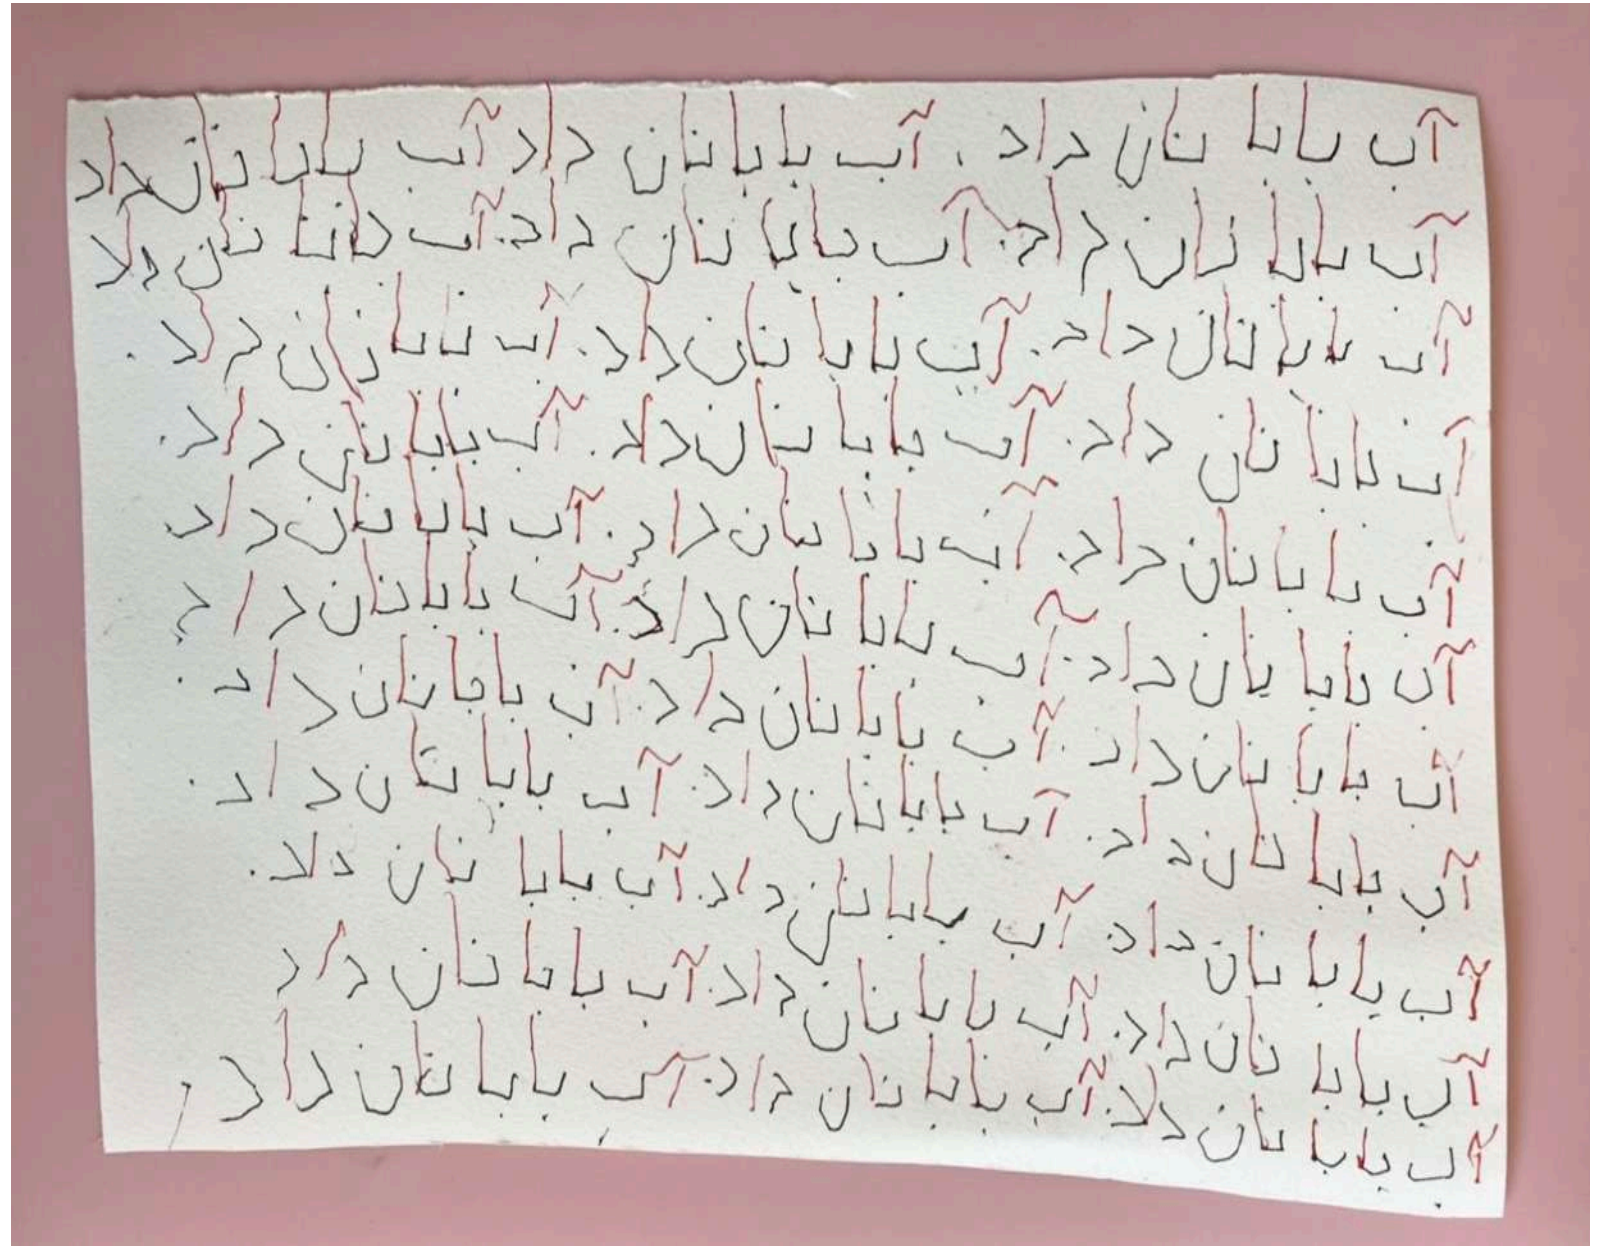 آب بابا نان داد . آب بابا نان داد آب بابا نان داد
آب بابا نان داد. آب بابا نان داد. آب بابا نان داد
آب بابا نان داد. آب بابا نان داد. آب بابا نان داد.
آب بابا نان داد. آب بابا نان داد. آب بابا نان داد.
آب بابا نان داد. آب بابا نان داد. آب بابا نان داد.
آب بابا نان داد. آب بابا نان داد. آب بابا نان داد.
آب بابا نان داد. آب بابا نان داد. آب بابا نان داد.
آب بابا نان داد. آب بابا نان داد. آب بابا نان داد.
آب بابا نان داد. آب بابا نان داد. آب بابا نان داد.
آب بابا نان داد. آب بابا نان داد. آب بابا نان داد
آب بابا نان داد. آب بابا نان داد. آب بابا نان داد.